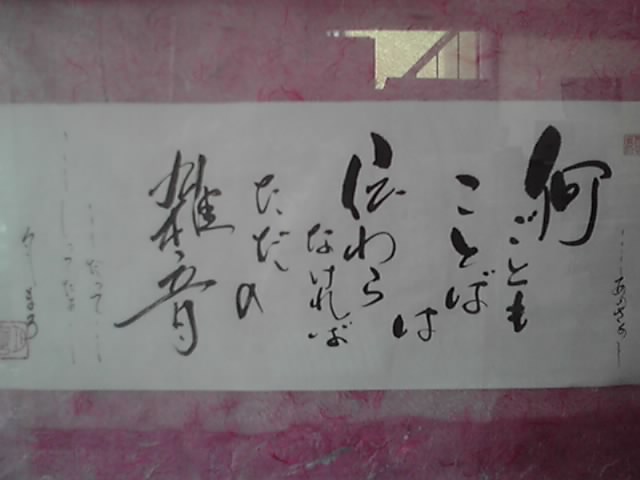 何ごとも
ことば
は
伝わら
なければ
ただの
雑音